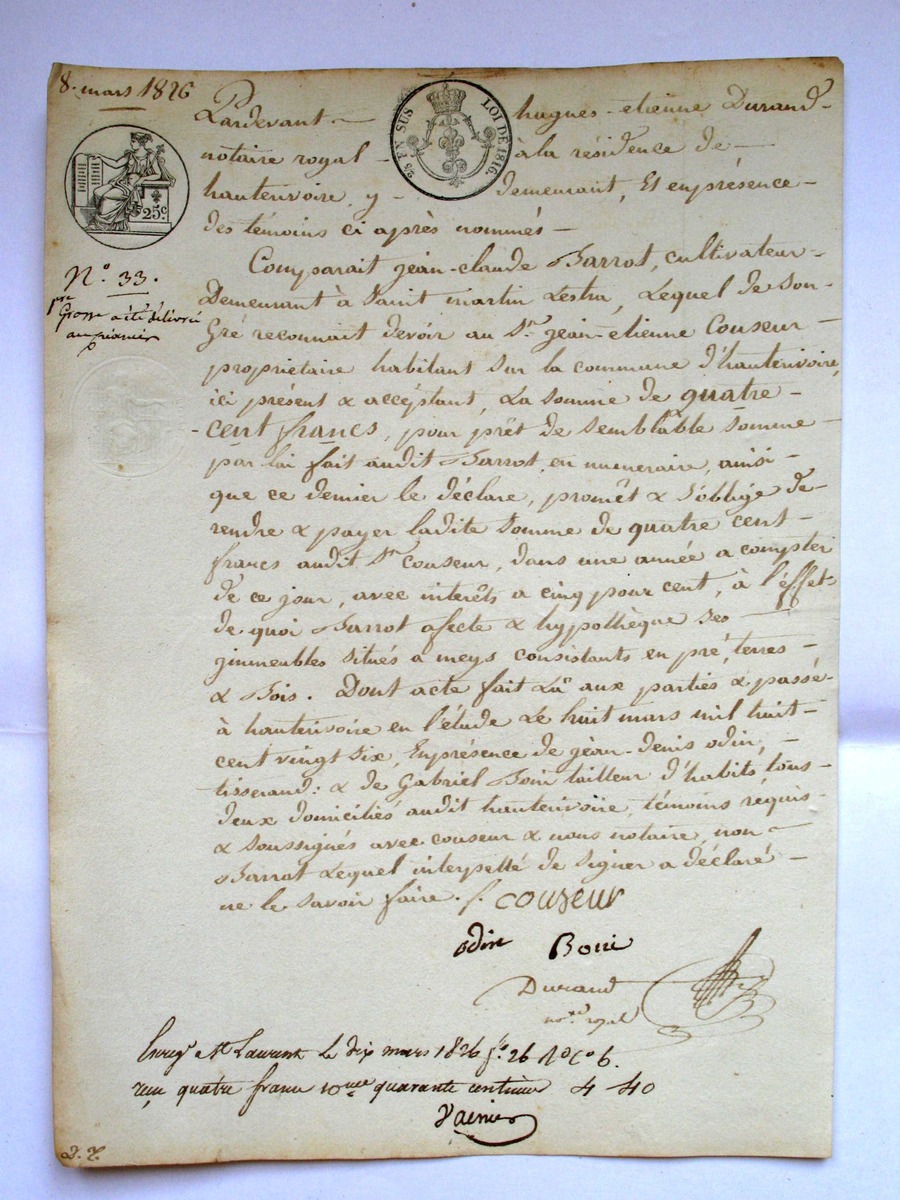 8. mars 1826
25 EN SUS LOI DE 1816.
25c
N° 33.
1ere
Grosse a été délivré
au créancier
Pardevant hugues-etienne Durand
notaire royal à la résidence de
hauterivoire, y demeurant, Et en présence
des témoins ci après nommés
Comparait jean-claude Barrot, cultivateur
Demeurant à Saint martin Lestra, Lequel de Son
Gré reconnait devoir au Sr. jean-etienne Couseur
propriétaire habitant Sur la commune d'hauterivoire,
ici présent & accéptant, La Somme de quatre
cent francs, pour prêt de Semblable Somme
par lui fait audit Barrot, en numeraire, ainsi
que ce dernier le déclare, promêt & S'oblige de
rendre & payer ladite Somme de quatre cent
francs audit Sr couseur, dans une année a compter
de ce jour, avec interêts a cinq pour cent, à l'éffet
de quoi Barrot afecte & hypothèque Ses
immeubles Situés a meys consistants en pré, terres
& Bois. Dont acte fait Lu aux parties & passé
à hauterivoire en l'étude Le huit mars mil huit
cent vingt Six, En présence de jèan-denis odin,
tisserand: & de Gabriel Boin tailleur d'habits, tous
deux domiciliés audit hauterivoire, témoins requis
& Soussignés avec couseur & nous notaire, non
Barrot Lequel interpellé de Signer a déclaré
ne le Savoir faire. /. couzeur
odin Boin
Durand
not.re royal
Enreg.é a St Laurent Le dix mars 1826 f.o 26 R.o C.e 6.
reçu quatre francs 10me quarante centimes 4 40